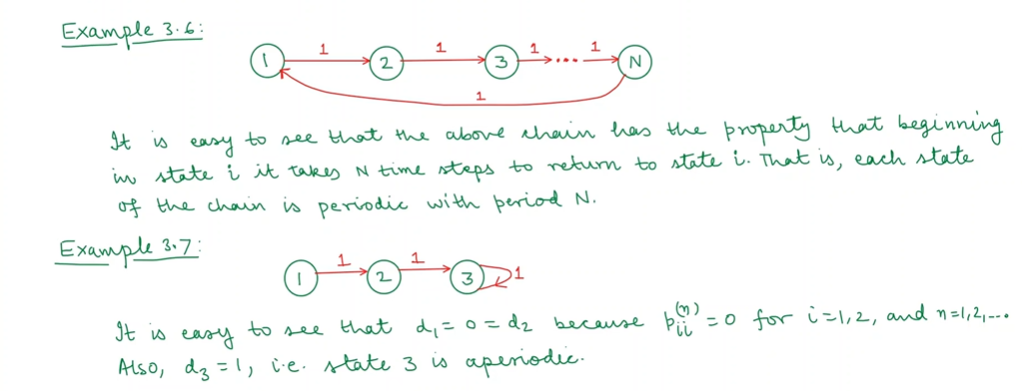 Example 3.6:
1 1 1 1
1 2 3 ... N
1
It is easy to see that the above chain has the property that beginning
in state i it takes N time steps to return to state i. That is, each state
of the chain is periodic with period N.
Example 3.7:
1 1
1 2 3 1
It is easy to see that d₁ = 0 = d₂ because pᵢᵢ⁽ⁿ⁾ = 0 for i=1,2, and n=1,2,...
Also, d₃ = 1, i.e. state 3 is aperiodic.